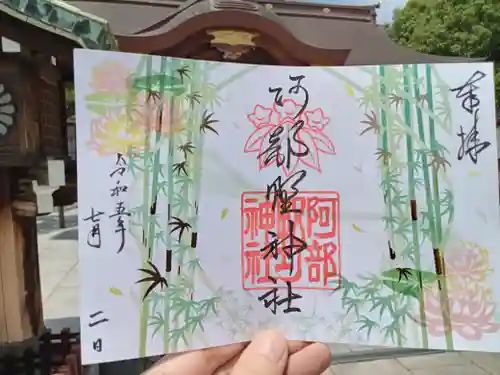 奉拝
阿部野神社
阿部野神社
令和五年
七月
二日